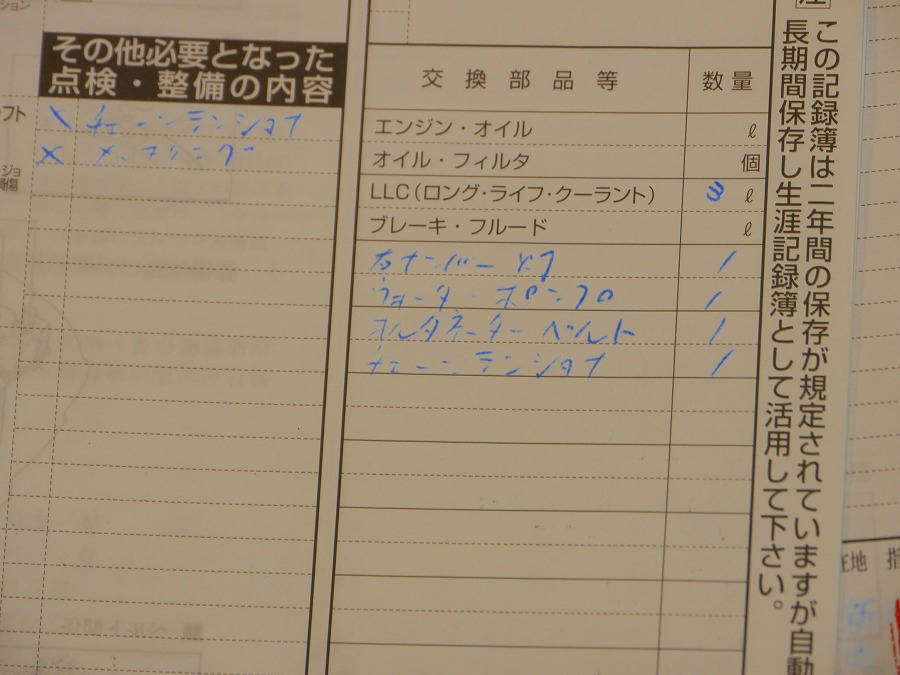 ション
その他必要となった
点検・整備の内容
フト
× チェーンテンショナ
×
ジョ
損傷
交換部品等 数量
エンジン・オイル ℓ
オイル・フィルタ 個
LLC(ロング・ライフ・クーラント) 3 ℓ
ブレーキ・フルード ℓ
右ナンバー 1
ウォーターポンプ 1
オルタネーターベルト 1
チェーンテンショナ 1
注
この記録簿は二年間の保存が規定されていますが自動
長期間保存し生涯記録簿として活用して下さい。
在地 指